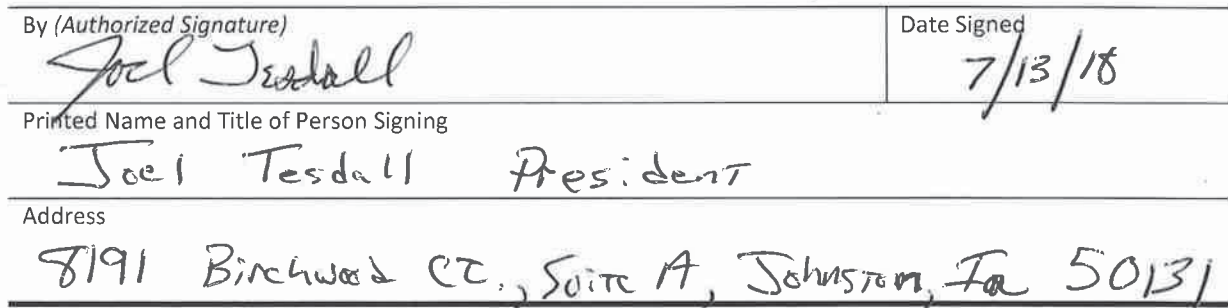 By (Authorized Signature)
Date Signed
Joel Tesdall
7/13/18
Printed Name and Title of Person Signing
Joel Tesdall President
Address
8191 Birchwood CT., Suite A, Johnston, Ia 50131